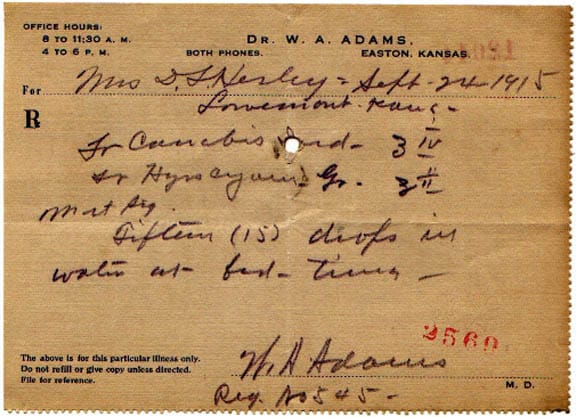 OFFICE HOURS:
8 TO 11:30 A. M.
4 TO 6 P. M.
DR. W. A. ADAMS,
BOTH PHONES. EASTON, KANSAS.
For Mrs D. S. Henley Sept. 24 1915
Lowemont Kans
R
Tr Cannabis Ind ʒ IV
Tr Hyoscyam Gr. ʒ II
M et Sig.
Fifteen (15) drops in
water at bed-time
2560
The above is for this particular illness only.
Do not refill or give copy unless directed.
File for reference.
W A Adams
M. D.
Reg. No 545